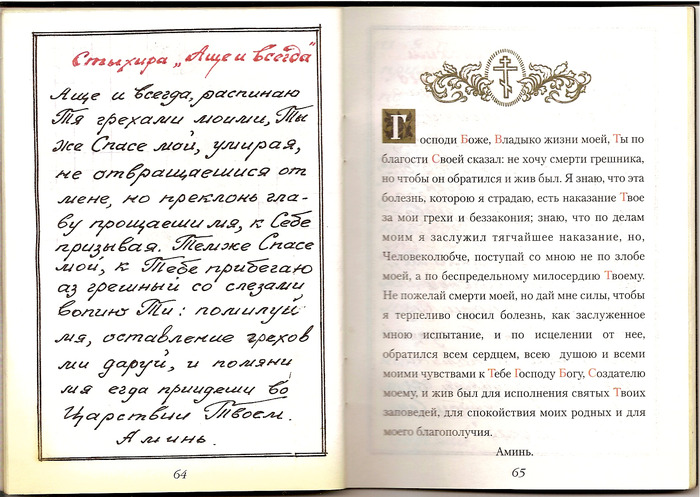 Стыхира „Аще и всегда"
Аще и всегда, распинаю
Тя грехами моими, Ты
же Спасе мой, умирая,
не отвращаешися от
мене, но преклонь гла-
ву прощаеши мя, к Себе
призывая. Темже Спасе
мой, к Тебе прибегаю
аз грешный со слезами
вопию Ти: помилуй
мя, оставление грехов
ми даруй, и помяни
мя егда приидеши во
Царствии Твоем.
Аминь.
64
Господи Боже, Владыко жизни моей, Ты по
благости Своей сказал: не хочу смерти грешника,
но чтобы он обратился и жив был. Я знаю, что эта
болезнь, которою я страдаю, есть наказание Твое
за мои грехи и беззакония; знаю, что по делам
моим я заслужил тягчайшее наказание, но,
Человеколюбче, поступай со мною не по злобе
моей, а по беспредельному милосердию Твоему.
Не пожелай смерти моей, но дай мне силы, чтобы
я терпеливо сносил болезнь, как заслуженное
мною испытание, и по исцелении от нее,
обратился всем сердцем, всею душою и всеми
моими чувствами к Тебе Господу Богу, Создателю
моему, и жив был для исполнения святых Твоих
заповедей, для спокойствия моих родных и для
моего благополучия.
Аминь.
65